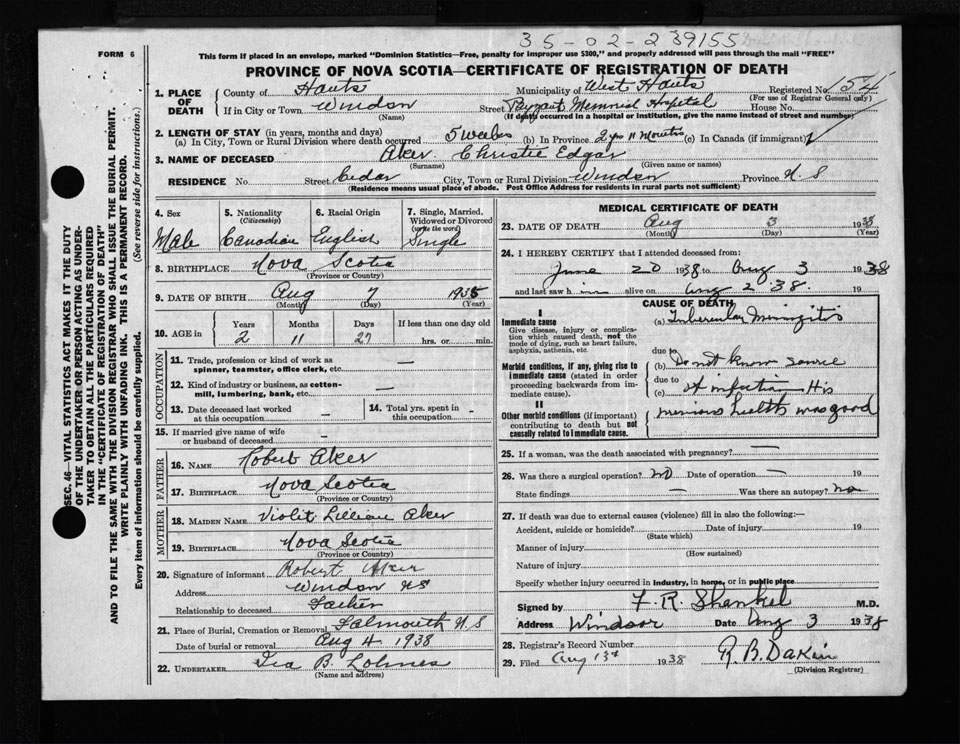 35-02-239155
FORM 6
This form if placed in an envelope, marked "Dominion Statistics—Free, penalty for improper use $300," and properly addressed will pass through the mail "FREE"
PROVINCE OF NOVA SCOTIA—CERTIFICATE OF REGISTRATION OF DEATH
1. PLACE OF DEATH
County of Hants Municipality of West Hants Registered No. 54
(For use of Registrar General only)
If in City or Town Windsor Street Payzant Memorial Hospital House No.
(Name) (If death occurred in a hospital or institution, give the name instead of street and number)
2. LENGTH OF STAY (in years, months and days)
(a) In City, Town or Rural Division where death occurred 5 weeks (b) In Province 2 yrs 11 months (c) In Canada (if immigrant)
3. NAME OF DECEASED Aker Christie Edgar
(Surname) (Given name or names)
RESIDENCE No. Street Cedar City, Town or Rural Division Windsor Province N.S
(Residence means usual place of abode. Post Office Address for residents in rural parts not sufficient)
4. Sex
Male
5. Nationality
(Citizenship)
Canadian
6. Racial Origin
English
7. Single, Married, Widowed or Divorced
(write the word)
Single
8. BIRTHPLACE Nova Scotia
(Province or Country)
9. DATE OF BIRTH Aug 7 1935
(Month) (Day) (Year)
10. AGE in
Years Months Days If less than one day old
2 11 27 hrs. or min.
OCCUPATION
11. Trade, profession or kind of work as spinner, teamster, office clerk, etc. —
12. Kind of industry or business, as cotton-mill, lumbering, bank, etc. —
13. Date deceased last worked at this occupation -
14. Total yrs. spent in this occupation -
15. If married give name of wife or husband of deceased -
FATHER
16. NAME Robert Aker
17. BIRTHPLACE Nova Scotia
(Province or Country)
MOTHER
18. MAIDEN NAME Violit Lillian Aker
19. BIRTHPLACE Nova Scotia
(Province or Country)
20. Signature of informant Robert Aker
Address Windsor NS
Relationship to deceased Father
21. Place of Burial, Cremation or Removal Falmouth N.S
Date of burial or removal Aug 4 1938
22. UNDERTAKER Ira B. Lohnes
(Name and address)
MEDICAL CERTIFICATE OF DEATH
23. DATE OF DEATH Aug 3 1938
(Month) (Day) (Year)
24. I HEREBY CERTIFY that I attended deceased from:
June 20 1938 to Aug 3 1938
and last saw him alive on Aug 2 '38.
CAUSE OF DEATH
I
Immediate cause (a) Tubercular Miningitis
Give disease, injury or complication which caused death, not the mode of dying, such as heart failure, asphyxia, asthenia, etc.
due to
Morbid conditions, if any, giving rise to immediate cause (stated in order proceeding backwards from immediate cause).
(b) Do not know source
due to
(c) of infection His
II
Other morbid conditions (if important) contributing to death but not causally related to immediate cause.
previous health was good
25. If a woman, was the death associated with pregnancy? —
26. Was there a surgical operation? no Date of operation — 19
State findings — Was there an autopsy? no
27. If death was due to external causes (violence) fill in also the following:—
Accident, suicide or homicide? Date of injury 19
(State which)
Manner of injury
(How sustained)
Nature of injury
Specify whether injury occurred in industry, in home, or in public place
Signed by F. R. Shankel M.D.
Address Windsor Date Aug 3 1938
28. Registrar's Record Number
29. Filed Aug 13th 1938 R. B. Dakin
(Division Registrar)
SEC. 46—VITAL STATISTICS ACT MAKES IT THE DUTY
OF THE UNDERTAKER OR PERSON ACTING AS UNDER-
TAKER TO OBTAIN ALL THE PARTICULARS REQUIRED
IN THE "CERTIFICATE OF REGISTRATION OF DEATH"
AND TO FILE THE SAME WITH THE DIVISION REGISTRAR WHO SHALL ISSUE THE BURIAL PERMIT.
WRITE PLAINLY WITH UNFADING INK. THIS IS A PERMANENT RECORD.
Every item of information should be carefully supplied. (See reverse side for instructions.)